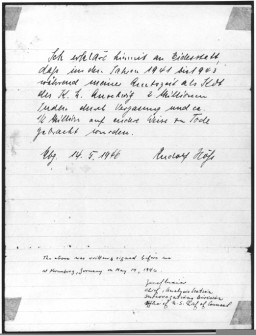 Ich erkläre hiermit an Eidesstatt,
daß in den Jahren 1941 bis 1943
während meiner Amtszeit als Kdt
des K. L. Auschwitz 2 Millionen
Juden durch Vergasung und ca.
1/2 Million auf andere Weise zu Tode
gebracht wurden.
14.5.1946 Rudolf Höß
The above was writing signed before me
at Nurnberg, Germany on May 14, 1946
Chief, Analysis Section
Interrogation Division
Office of U.S. Chief of Counsel